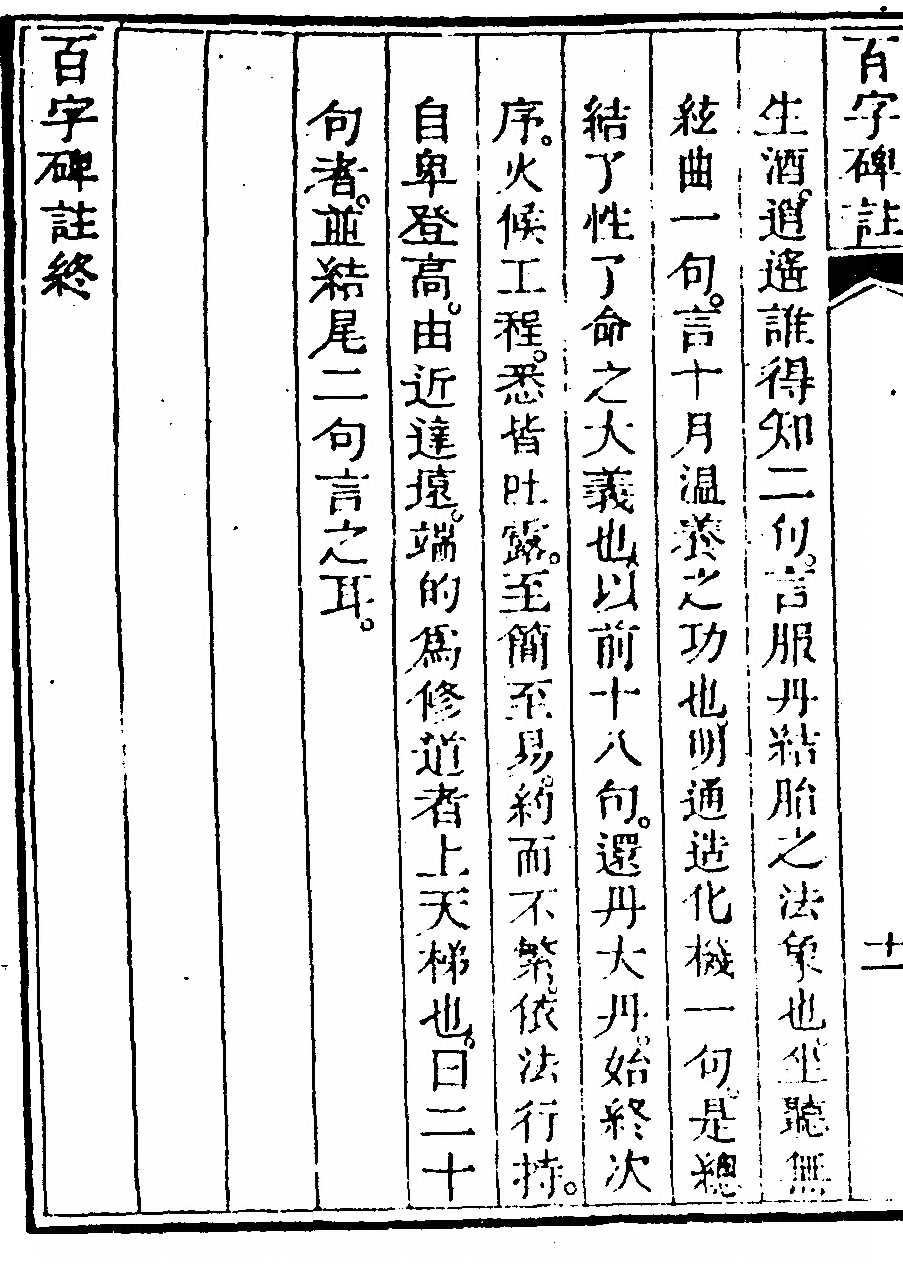 百字碑註
十
生酒。逍遙誰得知二句。言服丹結胎之法象也。坐聽無
絃曲一句。言十月温養之功也。明通造化機一句。是總
結了性了命之大義也。以前十八句。還丹大丹。始終次
序。火候工程。悉皆吐露。至簡至易。約而不繁。依法行持。
自卑登高。由近達遠。端的爲修道者上天梯也。曰二十
句者。並結尾二句言之耳。
百字碑註終